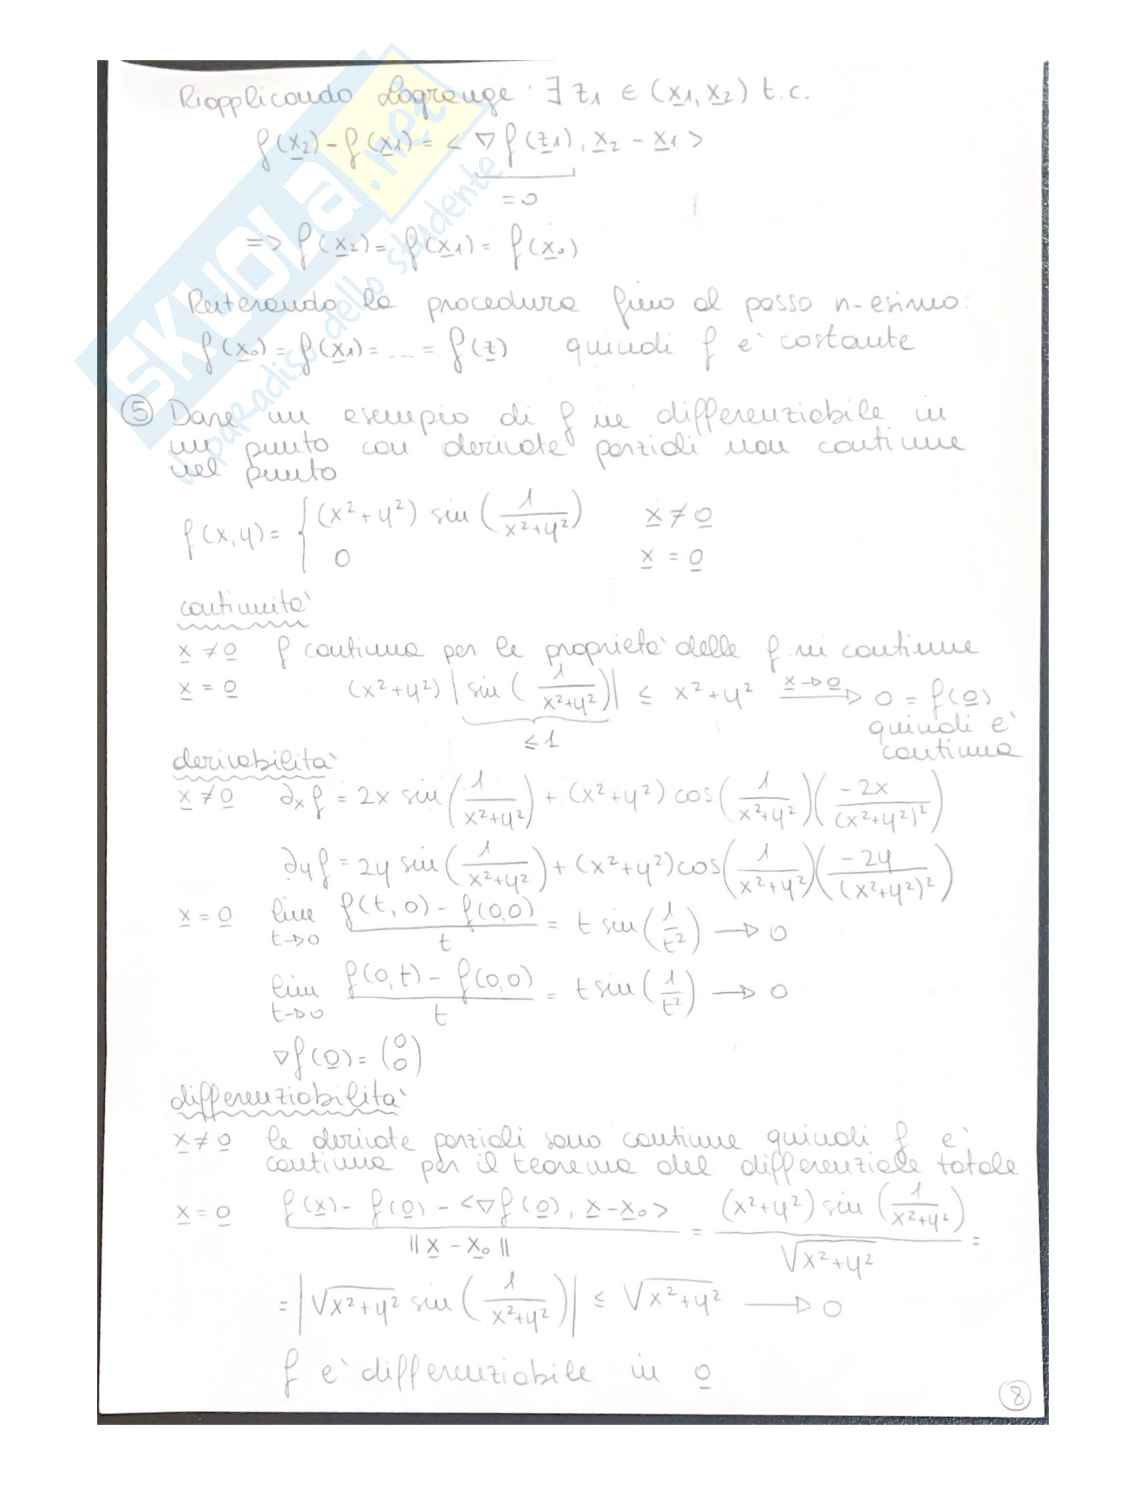 Riapplicando Lagrange: ∃ z₁ ∈ (x₁, x₂) t.c.
f(x₂) - f(x₁) = < ∇f(z₁), x₂ - x₁ >
= 0
=> f(x₂) = f(x₁) = f(x₀)
Reiterando la procedura fino al passo n-esimo:
f(x₀) = f(x₁) = ... = f(z) quindi f è costante
⑤ Dare un esempio di f ne differenziabile in
un punto con derivate parziali non continue
nel punto
f(x,y) = { (x²+y²) sin(1/(x²+y²)) x ≠ 0
0 x = 0
continuità
x ≠ 0 f continua per le proprietà delle f.ni continue
x = 0 (x²+y²) |sin(1/(x²+y²))| ≤ x²+y² x→0 → 0 = f(0)
≤ 1
quindi è
continua
derivabilità
x ≠ 0 ∂ₓf = 2x sin(1/(x²+y²)) + (x²+y²) cos(1/(x²+y²)) (-2x/(x²+y²)²)
∂yf = 2y sin(1/(x²+y²)) + (x²+y²) cos(1/(x²+y²)) (-2y/(x²+y²)²)
x = 0 lim t→0 (f(t,0) - f(0,0))/t = t sin(1/t²) → 0
lim t→0 (f(0,t) - f(0,0))/t = t sin(1/t²) → 0
∇f(0) = (0 0)
differenziabilità
x ≠ 0 le derivate parziali sono continue quindi f è
continua per il teorema del differenziale totale
x = 0 (f(x) - f(0) - <∇f(0), x - x₀>)/||x - x₀|| = ((x²+y²) sin(1/(x²+y²)))/√(x²+y²) =
= |√(x²+y²) sin(1/(x²+y²))| ≤ √(x²+y²) → 0
f è differenziabile in 0
8
SKUOLA.net
il paradiso dello studente